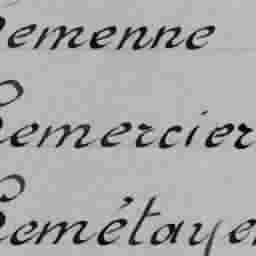 Lemenne
Lemercier
Lemétayer